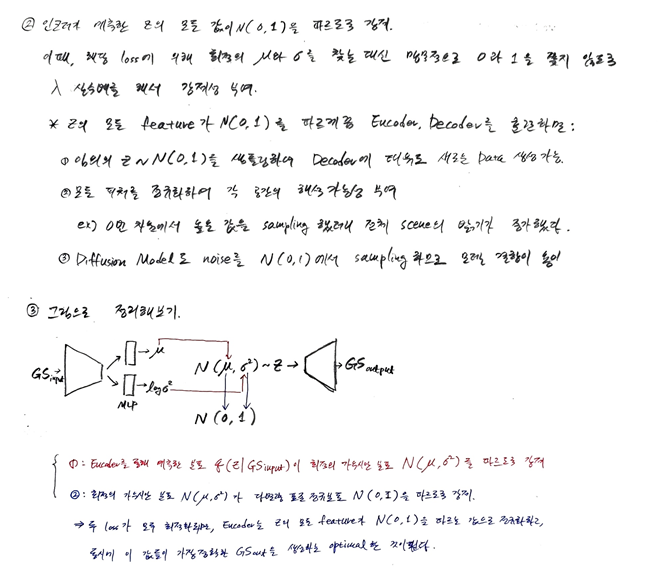 ② 인코더가 예측한 z의 모든 값이 N(0,1)을 따르도록 강제.
이때, 해당 loss에 의해 최적의 μ와 σ를 찾는 대신 맹목적으로 0과 1을 쫓지 않도록
λ 상수배를 해서 강제성 부여.
* z의 모든 feature가 N(0,1)을 따르게끔 Encoder, Decoder를 훈련하면:
① 임의의 z~N(0,1)을 샘플링하여 Decoder에 태워도 새로운 Data 생성가능.
② 모든 피처를 정규화하여 각 공간의 해석가능성 부여
ex) 0번 차원에서 높은 값을 sampling 했더니 전체 scene의 밝기가 증가했다.
③ Diffusion Model도 noise를 N(0,1)에서 sampling 하므로 모델 결합이 용이
③ 그림으로 정리해보기.
GS input → → μ N(μ, σ²) ~ z → → GS output
→ log σ²
MLP N(0, 1)
①: Encoder를 통해 예측한 분포 q(z|GS input)이 최적의 가우시안 분포 N(μ, σ²)을 따르도록 강제
②: 최적의 가우시안 분포 N(μ, σ²)가 다변량 표준 정규분포 N(0, I)을 따르도록 강제.
→ 두 loss가 모두 최적화되면, Encoder는 z의 모든 feature가 N(0,1)을 따르는 값으로 정규화하고,
동시에 이 값들이 가장 정확한 GS out을 생성하는 optimal한 것이 된다.